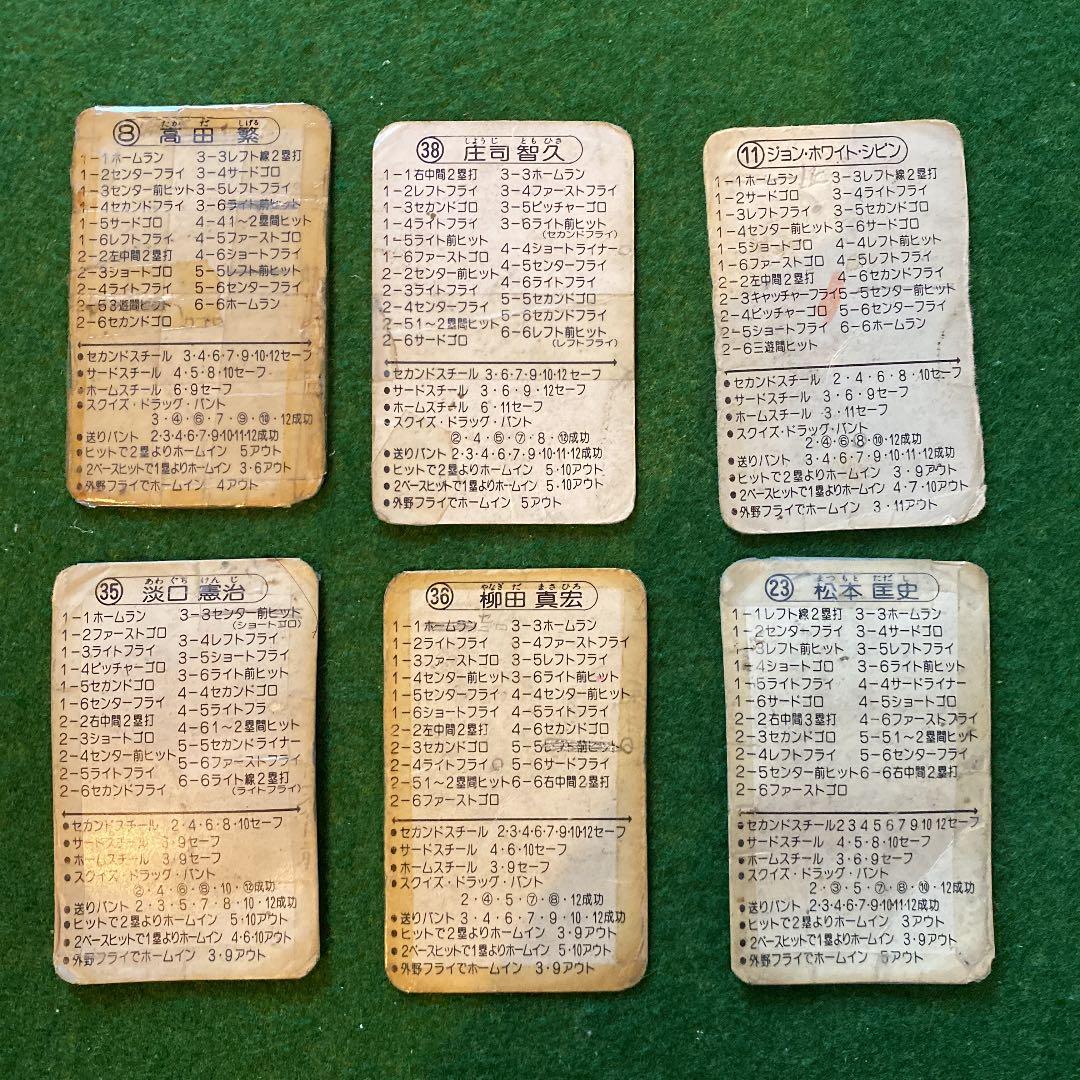 たか だ しげる
⑧ 高田 繁
1-1ホームラン 3-3レフト線2塁打
1-2センターフライ 3-4サードゴロ
1-3センター前ヒット 3-5レフトフライ
1-4セカンドフライ 3-6ライト前ヒット
1-5サードゴロ 4-41～2塁間ヒット
1-6レフトフライ 4-5ファーストゴロ
2-2左中間2塁打 4-6ショートフライ
2-3ショートゴロ 5-5レフト前ヒット
2-4ライトフライ 5-6レフトフライ
2-53遊間ヒット 6-6ホームラン
2-6セカンドゴロ
●セカンドスチール 3・4・6・7・9・10・12セーフ
●サードスチール 4・5・8・10セーフ
●ホームスチール 6・9セーフ
●スクイズ・ドラッグ・バント
3・④・⑥・7・⑨・⑩・12成功
●送りバント 2・3・4・6・7・9・10・11・12成功
●ヒットで2塁よりホームイン 5アウト
●2ベースヒットで1塁よりホームイン 3・6アウト
●外野フライでホームイン 4アウト
しょうじ ともひさ
㊳ 庄司智久
1-1右中間2塁打 3-3ホームラン
1-2レフトフライ 3-4ファーストフライ
1-3セカンドゴロ 3-5ピッチャーゴロ
1-4ライトフライ 3-6ライト前ヒット
(セカンドフライ)
1-5ライト前ヒット 4-4ショートライナー
1-6ファーストゴロ 4-5センターフライ
2-2センター前ヒット 4-6レフトフライ
2-3ライトフライ 5-5セカンドゴロ
2-4センターフライ 5-6セカンドフライ
2-51～2塁間ヒット 6-6レフト前ヒット
2-6サードゴロ (レフトフライ)
●セカンドスチール 3・6・7・9・10・12セーフ
●サードスチール 3・6・9・12セーフ
●ホームスチール 6・11セーフ
●スクイズ・ドラッグ・バント
②・4・⑤・⑦・8・⑫成功
●送りバント 2・3・4・6・7・9・10・11・12成功
●ヒットで2塁よりホームイン 5・10アウト
●2ベースヒットで1塁よりホームイン 5・10アウト
●外野フライでホームイン 5アウト
⑪ ジョン・ホワイト・シピン
1-1ホームラン 3-3レフト線2塁打
1-2サードゴロ 3-4サードフライ
1-3レフトフライ 3-5セカンドゴロ
1-4センター前ヒット 3-6サードゴロ
1-5ショートゴロ 4-4レフト前ヒット
1-6ファーストゴロ 4-5レフトフライ
2-2左中間2塁打 4-6セカンドフライ
2-3キャッチャーフライ 5-5センター前ヒット
2-4ピッチャーゴロ 5-6センターフライ
2-5ショートフライ 6-6ホームラン
2-6三遊間ヒット
●セカンドスチール 2・4・6・8・10セーフ
●サードスチール 3・6・9セーフ
●ホームスチール 3・11セーフ
●スクイズ・ドラッグ・バント
2・④・⑥・⑧・⑩・12成功
●送りバント 3・4・6・7・9・10・11・12成功
●ヒットで2塁よりホームイン 3・9アウト
●2ベースヒットで1塁よりホームイン 4・7・10アウト
●外野フライでホームイン 3・11アウト
あわぐち けんじ
㉟ 淡口憲治
1-1ホームラン 3-3センター前ヒット
(ショートゴロ)
1-2ファーストゴロ 3-4レフトフライ
1-3ライトフライ 3-5ショートフライ
1-4ピッチャーゴロ 3-6ライト前ヒット
1-5セカンドゴロ 4-4セカンドゴロ
1-6センターフライ 4-5ライトフラ
2-2右中間2塁打 4-61～2塁間ヒット
2-3ショートゴロ 5-5セカンドライナー
2-4センター前ヒット 5-6ファーストフライ
2-5ライトフライ 6-6ライト線2塁打
2-6セカンドフライ (ライトフライ)
●セカンドスチール 2・4・6・8・10セーフ
●サードスチール 3・9セーフ
●ホームスチール 3・9セーフ
●スクイズ・ドラッグ・バント
②・4・⑥・⑧・10・⑫成功
●送りバント 2・3・5・7・8・10・12成功
●ヒットで2塁よりホームイン 5・10アウト
●2ベースヒットで1塁よりホームイン 4・6・10アウト
●外野フライでホームイン 3・9アウト
やなぎだ まさひろ
㊱ 柳田真宏
1-1ホームラン 3-3ホームラン
1-2ライトフライ 3-4ファーストフライ
1-3ファーストゴロ 3-5レフトフライ
1-4センター前ヒット 3-6ライト前ヒット
1-5センターフライ 4-4センター前ヒット
1-6ショートフライ 4-5ライトフライ
2-2左中間2塁打 4-6セカンドゴロ
2-3セカンドゴロ 5-5
2-4ライトフライ 5-6サードフライ
2-51～2塁間ヒット 6-6右中間2塁打
2-6ファーストゴロ
●セカンドスチール 2・3・4・6・7・9・10・12セーフ
●サードスチール 4・6・10セーフ
●ホームスチール 3・9セーフ
●スクイズ・ドラッグ・バント
2・④・5・⑦・⑧・12成功
●送りバント 3・4・6・7・9・10・12成功
●ヒットで2塁よりホームイン 3・9アウト
●2ベースヒットで1塁よりホームイン 5・10アウト
●外野フライでホームイン 3・9アウト
まつもと ただし
㉓ 松本匡史
1-1レフト線2塁打 3-3ホームラン
1-2センターフライ 3-4サードゴロ
1-3レフト前ヒット 3-5レフトフライ
1-4ショートゴロ 3-6ライト前ヒット
1-5ライトフライ 4-4サードライナー
1-6サードゴロ 4-5ショートゴロ
2-2右中間3塁打 4-6ファーストフライ
2-3セカンドゴロ 5-51～2塁間ヒット
2-4レフトフライ 5-6センターフライ
2-5センター前ヒット 6-6右中間2塁打
2-6ファーストゴロ
●セカンドスチール2 3 4 5 6 7 9 10 12セーフ
●サードスチール 4・5・8・10セーフ
●ホームスチール 3・6・9セーフ
●スクイズ・ドラッグ・バント
2・③・5・⑦・⑧・⑩・12成功
●送りバント 2・3・4・6・7・9・10・11・12成功
●ヒットで2塁よりホームイン 3アウト
●2ベースヒットで1塁よりホームイン 3・9アウト
●外野フライでホームイン 5アウト